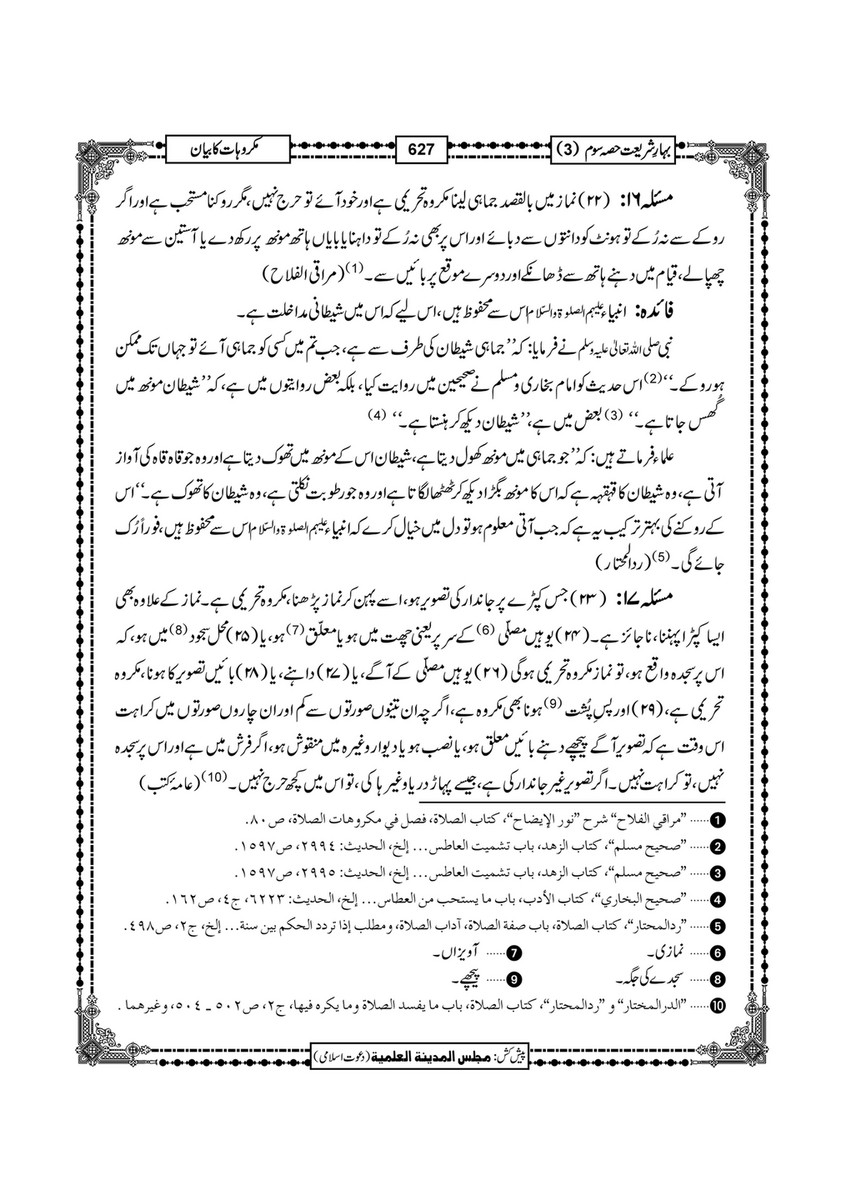 بہارِشریعت حصہ سوم (3)
627
مکروہات کا بیان
مسئلہ ۱۶: (۲۲) نماز میں بالقصد جماہی لینا مکروہ تحریمی ہے اور خود آئے تو حرج نہیں، مگر روکنا مستحب ہے اور اگر
روکے سے نہ رُکے تو ہونٹ کو دانتوں سے دبائے اور اس پر بھی نہ رُکے تو داہنا یا بایاں ہاتھ مونھ پر رکھ دے یا آستین سے مونھ
چھپالے، قیام میں دہنے ہاتھ سے ڈھانکے اور دوسرے موقع پر بائیں سے۔ (1) (مراقی الفلاح)
فائدہ: انبیاء علیہم الصلوۃ والسلام اس سے محفوظ ہیں، اس لیے کہ اس میں شیطانی مداخلت ہے۔
نبی صلی اللہ تعالیٰ علیہ وسلم نے فرمایا: کہ ’’جماہی شیطان کی طرف سے ہے، جب تم میں کسی کو جماہی آئے تو جہاں تک ممکن
ہو روکے۔‘‘ (2) اس حدیث کو امام بخاری و مسلم نے صحیحین میں روایت کیا، بلکہ بعض روایتوں میں ہے، کہ ’’شیطان مونھ میں
گُھس جاتا ہے۔‘‘ (3) بعض میں ہے، ’’شیطان دیکھ کر ہنستا ہے۔‘‘ (4)
علماء فرماتے ہیں: کہ ’’جو جماہی میں مونھ کھول دیتا ہے، شیطان اس کے مونھ میں تھوک دیتا ہے اور وہ جو قاہ قاہ کی آواز
آتی ہے، وہ شیطان کا قہقہہ ہے کہ اس کا مونھ بگڑا دیکھ کر ٹھٹھا لگاتا ہے اور وہ جو رطوبت نکلتی ہے، وہ شیطان کا تھوک ہے۔‘‘ اس
کے روکنے کی بہتر ترکیب یہ ہے کہ جب آتی معلوم ہو تو دل میں خیال کرے کہ انبیاء علیہم الصلوۃ والسلام اس سے محفوظ ہیں، فوراً رُک
جائے گی۔ (5) (ردالمحتار)
مسئلہ ۱۷: (۲۳) جس کپڑے پر جاندار کی تصویر ہو، اسے پہن کر نماز پڑھنا، مکروہ تحریمی ہے۔ نماز کے علاوہ بھی
ایسا کپڑا پہننا، ناجائز ہے۔ (۲۴) یوہیں مصلّی (6) کے سر پر یعنی چھت میں ہو یا معلّق (7) ہو، یا (۲۵) محل سجود (8) میں ہو، کہ
اس پر سجدہ واقع ہو، تو نماز مکروہ تحریمی ہوگی (۲۶) یوہیں مصلّی کے آگے، یا (۲۷) داہنے، یا (۲۸) بائیں تصویر کا ہونا، مکروہ
تحریمی ہے، (۲۹) اور پسِ پُشت (9) ہونا بھی مکروہ ہے، اگرچہ ان تینوں صورتوں سے کم اور ان چاروں صورتوں میں کراہت
اس وقت ہے کہ تصویر آگے پیچھے دہنے بائیں معلق ہو، یا نصب ہو یا دیوار وغیرہ میں منقوش ہو، اگر فرش میں ہے اور اس پر سجدہ
نہیں، تو کراہت نہیں۔ اگر تصویر غیر جاندار کی ہے، جیسے پہاڑ دریا وغیرہا کی، تو اس میں کچھ حرج نہیں۔ (10) (عامۂ کتب)
1 ...... ”مراقي الفلاح“ شرح ”نور الإيضاح“، كتاب الصلاة، فصل في مكروهات الصلاة، ص٨٠.
2 ...... ”صحيح مسلم“، كتاب الزهد، باب تشميت العاطس... إلخ، الحديث: ٢٩٩٤، ص١٥٩٧.
3 ...... ”صحيح مسلم“، كتاب الزهد، باب تشميت العاطس... إلخ، الحديث: ٢٩٩٥، ص١٥٩٧.
4 ...... ”صحيح البخاري“، كتاب الأدب، باب ما يستحب من العطاس... إلخ، الحديث: ٦٢٢٣، ج٤، ص١٦٢.
5 ...... ”ردالمحتار“، كتاب الصلاة، باب صفة الصلاة، آداب الصلاة، ومطلب إذا تردد الحكم بين سنة... إلخ، ج٢، ص٤٩٨.
6 ...... نمازی۔ 7 ...... آویزاں۔
8 ...... سجدے کی جگہ۔ 9 ...... پیچھے۔
10 ...... ”الدرالمختار“ و ”ردالمحتار“، كتاب الصلاة، باب ما يفسد الصلاة وما يكره فيها، ج٢، ص٥٠٢ ـ ٥٠٤، وغيرهما .
پیش کش: مجلس المدينة العلمية (دعوت اسلامی)